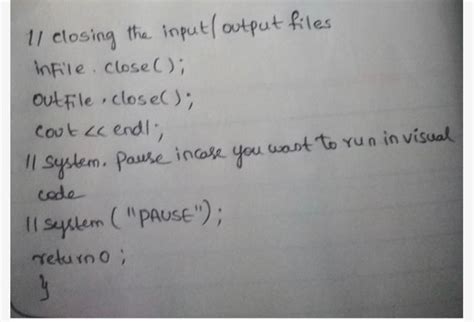 // closing the input/output files
inFile.close();
outFile.close();
cout << endl;
// System. Pause incase you want to run in visual
code
// system ("PAUSE");
return 0;
}